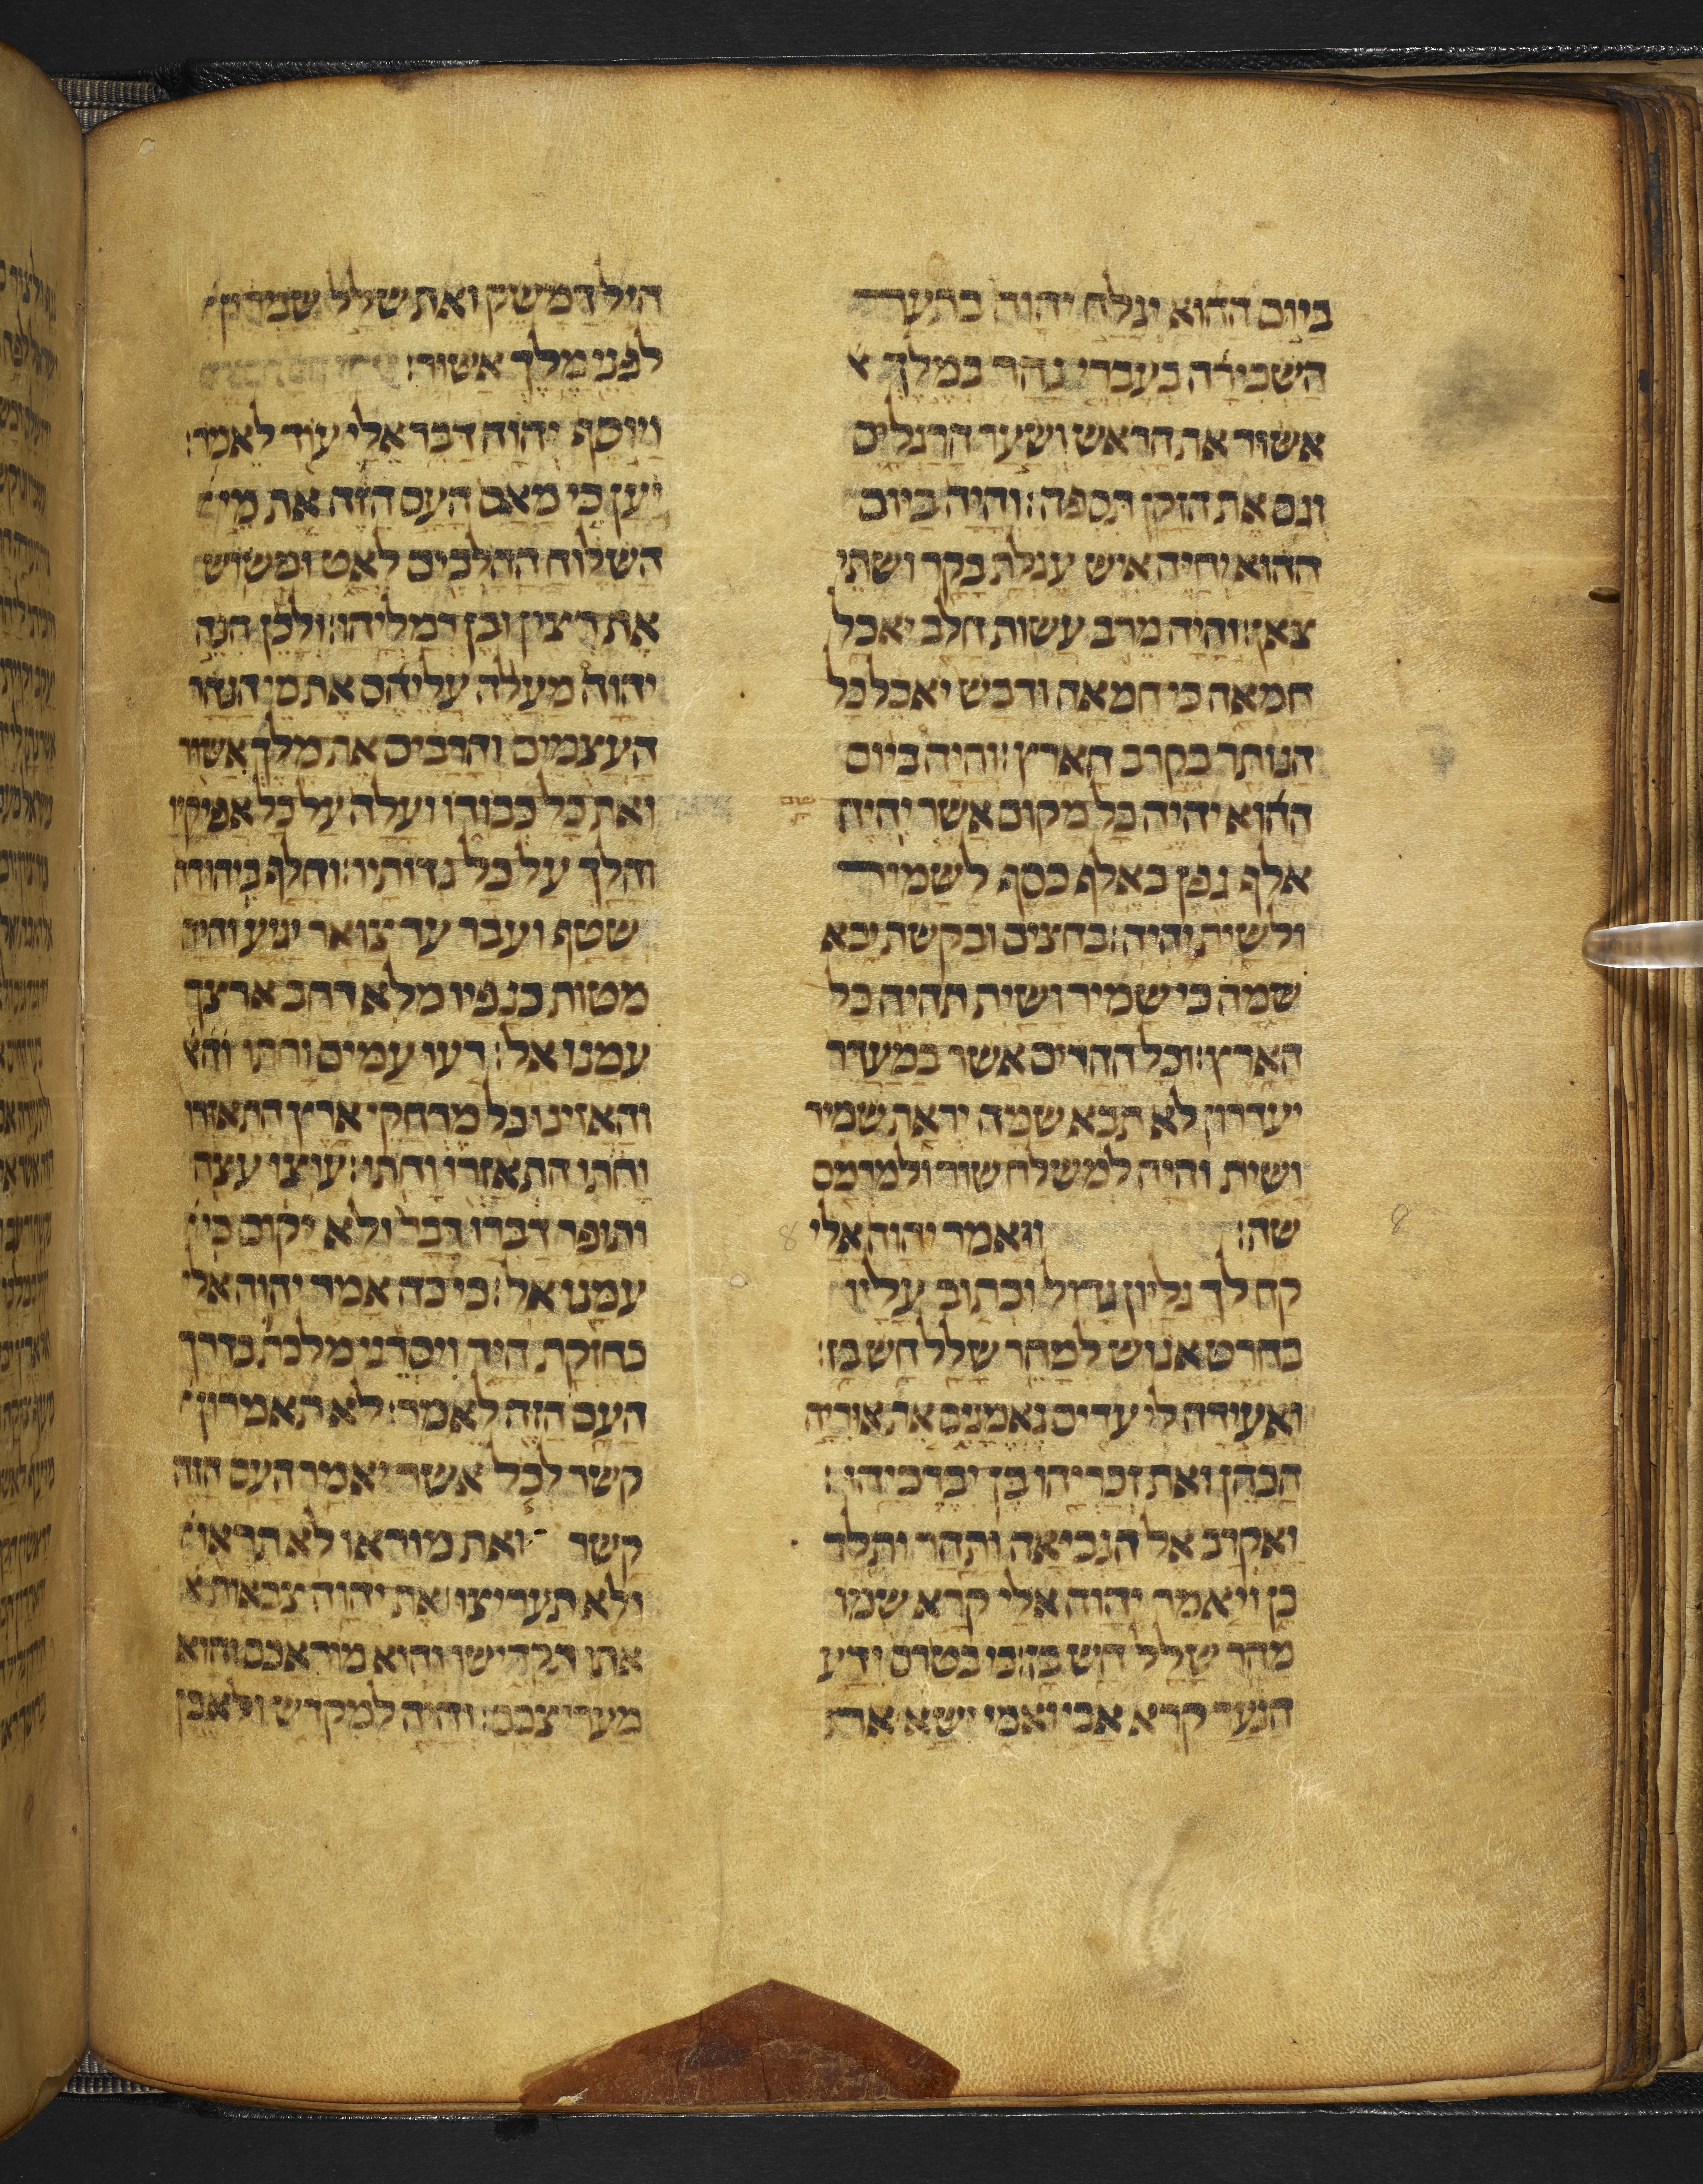 ביום ההוא יגלח יהוה בתער
השכירה בעברי נהר במלך א
אשור את הראש ושער הרגלים
וגם את הזקן תספה׃ והיה ביום
ההוא יחיה איש עגלת בקר ושתי
צאן׃ והיה מרב עשות חלב יאכל
חמאה כי חמאה ודבש יאכל כל
הנותר בקרב הארץ׃ והיה ביום
ההוא יהיה כל מקום אשר יהיה
אלף גפן באלף כסף לשמיר
ולשית יהיה׃ בחצים ובקשת יבא
שמה כי שמיר ושית תהיה כל
הארץ׃ וכל ההרים אשר במעדר
יעדרון לא תבא שמה יראת שמיר
ושית והיה למשלח שור ולמרמס
שה׃ ויאמר יהוה אלי
קח לך גליון גדול וכתוב עליו
בחרט אנוש למהר שלל חש בז׃
ואעידה לי עדים נאמנים את אוריה
הכהן ואת זכריהו בן יברכיהו׃
ואקרב אל הנביאה ותהר ותלד
בן ויאמר יהוה אלי קרא שמו
מהר שלל חש בז׃ כי בטרם ידע
הנער קרא אבי ואמי ישא את
חיל דמשק ואת שלל שמרון
לפני מלך אשור׃
ויוסף יהוה דבר אלי עוד לאמר׃
יען כי מאס העם הזה את מי
השלוח ההלכים לאט ומשוש
את רצין ובן רמליהו׃ ולכן הנה
יהוה מעלה עליהם את מי הנהר
העצומים והרבים את מלך אשור
ואת כל כבודו ועלה על כל אפיקיו
והלך על כל גדותיו׃ וחלף ביהודה
שטף ועבר עד צואר יגיע והיה
מטות כנפיו מלא רחב ארצך
עמנו אל׃ רעו עמים וחתו והא
והאזינו כל מרחקי ארץ התאזרו
וחתו התאזרו וחתו׃ עוצו עצה
ותופר דברו דבר ולא יקום כי
עמנו אל׃ כי כה אמר יהוה אלי
כחזקת היד ויסרני מלכת בדרך
העם הזה לאמר׃ לא תאמרון
קשר לכל אשר יאמר העם הזה
קשר ואת מוראו לא תיראו
ולא תעריצו׃ את יהוה צבאות א
אתו תקדישו והוא מוראכם והוא
מערצכם׃ והיה למקדש ולאבן
8
8